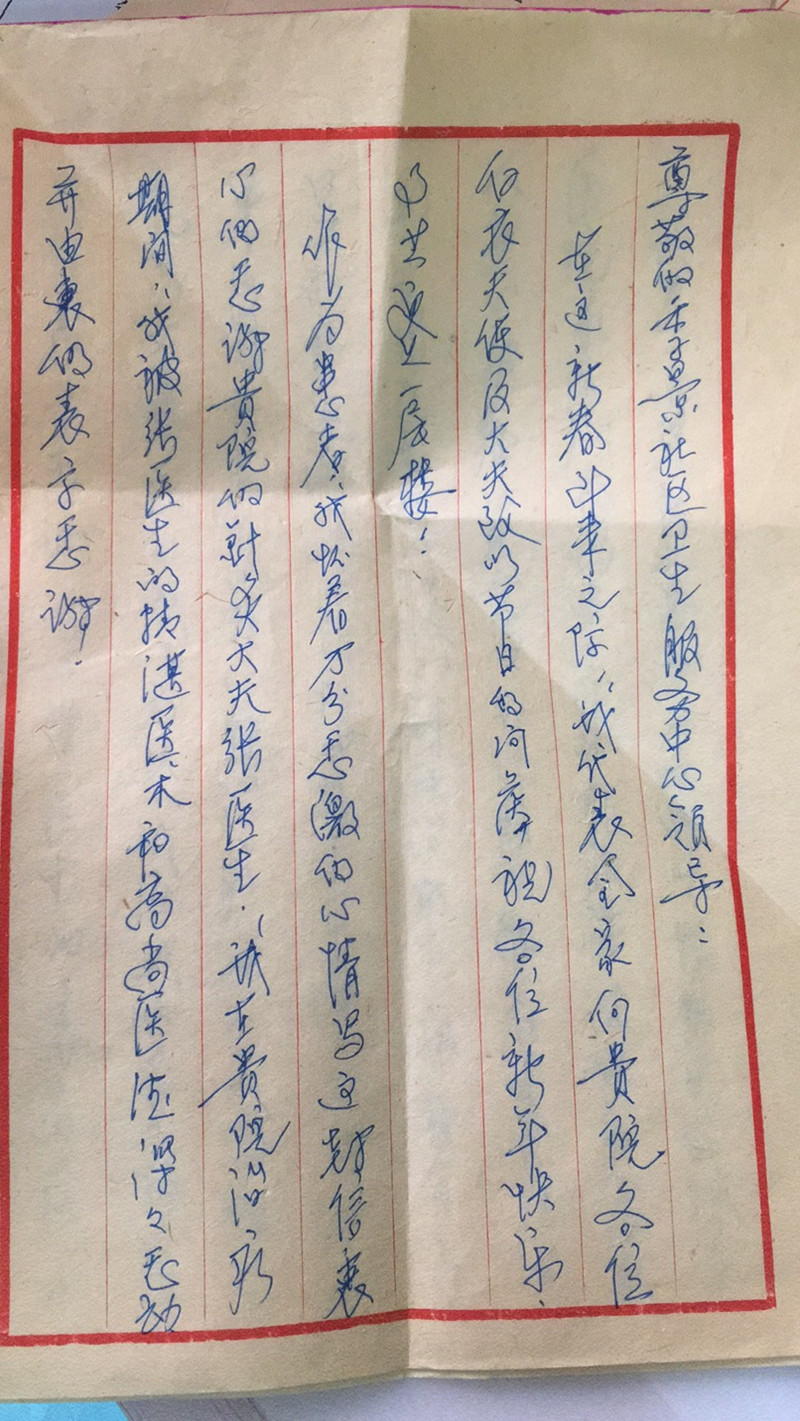 尊敬的禾景社区卫生服务中心领导：
在这新春到来之际，我代表全家向贵院各位
白衣天使及大夫致以节日的问候祝各位新年快乐，
更上一层楼！
作为患者，我怀着万分感激的心情写这封信衷
心的感谢贵院的针灸大夫张医生。我在贵院治疗
期间，我被张医生的精湛医术和高尚医德深深感动
并由衷的表示感谢。